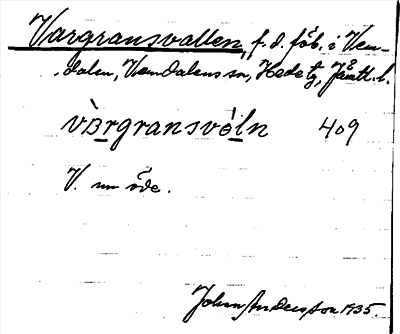 Vargransvallen, f. d. fäb. i Vem-
dalen, Vemdalens sn, Hede tg, Jämtl. l.
vàrgransvó̤ln 409
V. nu öde.
Johan Andersson 1935.